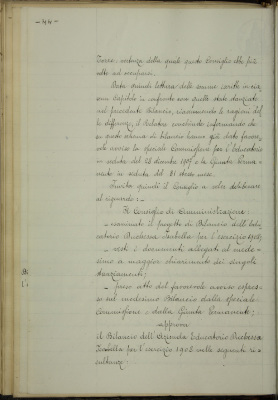 -44-
Torre, vertenza della quale questo Consiglio ebbe più
volte ad occuparsi.
Data quindi lettura delle somme iscritte in cia-
scun capitolo in confronto con quelle state stanziate
nel precedente bilancio, riassumendo le ragioni del
le differenze, il Relatore conclude informando che
su questo schema di bilancio hanno già dato favore-
vole avviso la speciale Commissione per l'Educatorio
in seduta del 28 dicembre 1907 e la Giunta Perma-
nente in seduta del 31 stesso mese.
Invita quindi il Consiglio a voler deliberare
al riguardo:-
Il Consiglio di Amministrazione:
- esaminato il progetto di Bilancio dell'Edu-
catorio Duchessa Isabella per l'esercizio 1908;
- visti i documenti allegati al mede-
simo a maggior chiarimento dei singoli
stanziamenti;
- preso atto del favorevole avviso espres-
so sul medesimo Bilancio dalla speciale
Commissione e dalla Giunta Permanente;
- approva
il Bilancio dell'Azienda Educatorio Duchessa
Isabella per l'esercizio 1908 nelle seguenti ri-
sultanze: